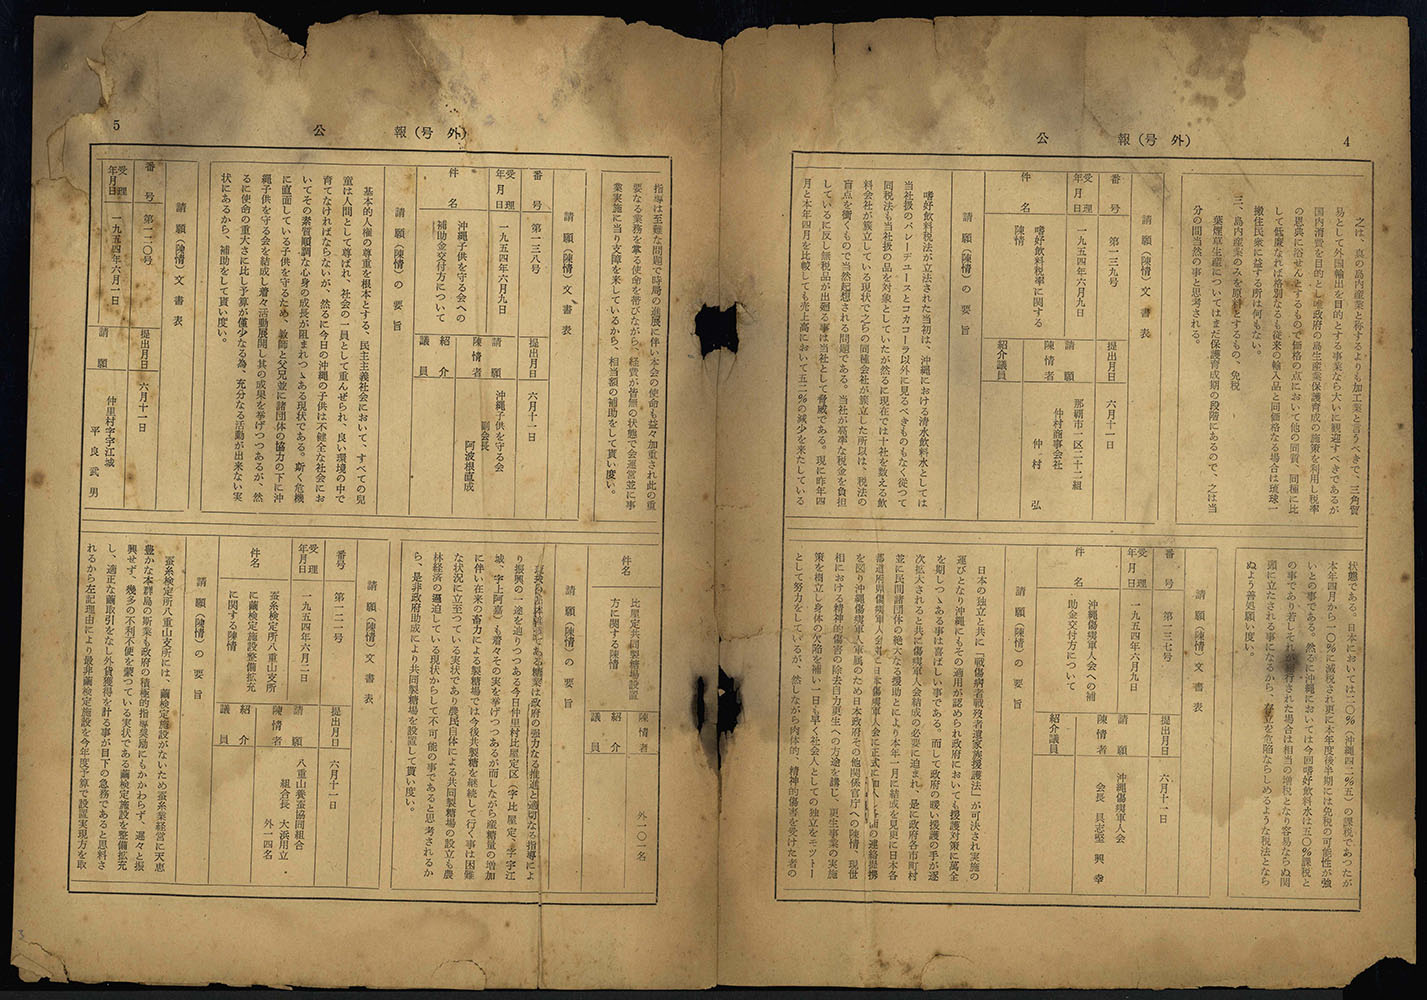 4
公報(号外)
之は、真の島内産業と称するよりも加工業と言うべきで、三角貿
易として外国輸出を目的とする事業なら大いに観迎すべきであるが
国内消費を目的とし唯政府の島生産業保護育成の施策を利用し税率
の恩典に浴せんとするもので価格の点において他の同質、同種に比
して低廉なれば格別なるも従来の輸入品と同価格なる場合は琉球一
般住民衆に益する所は何もない。
三、島内産業のみを原料とするもの、免税
葉煙草生産についてはまだ保護育成期の段階にあるので、之は当
分の間当然の事と思考される。
請願(陳情)文書表
番号 第一三九号 提出月日 六月十一日
受理年月日 一九五四年六月九日
請願陳情者 那覇市一区二十二組
仲村商事会社
仲村弘
件名 嗜好飲料税率に関する
陳情
紹介議員
請願(陳情)の要旨
嗜好飲料税法が立法された当初は、沖縄における清水飲料水としては
当社扱のバレーヂユースとコカコーラ以外に見るべきものもなく従つて
同税法も当社扱の品を対象としていたが然るに現在では十社を数える飲
料会社が簇立している現状で之らの同種会社が簇立した所以は、税法の
盲点を衝くもので当然起想される問題である。当社が高率な税金を負担
しているに反し無税品が出廻る事は当社として脅威である。現に昨年四
月と本年四月を比較しても売上高において五二%の減少を来たしている
状態である。日本においては二〇%(沖縄四二%五)の課税であつたが
本年四月から一〇%に減税され更に本年度後半期には免税の可能性が強
いとの事である。然るに沖縄においては今回嗜好飲料水は五〇%課税と
の事であり若しそれが断行された場合は相当の増税となり容易ならぬ関
頭に立たされる事になるから、存立を危険ならしめるような税法となら
ぬよう善処願い度い。
請願(陳情)文書表
番号 第一三七号 提出月日 六月十一日
受理年月日 一九五四年六月九日
請願陳情者 沖縄傷痍軍人会
会長 具志堅興幸
件名 沖縄傷痍軍人会への補
助金交付方について
紹介議員
請願(陳情)の要旨
日本の独立と共に「戦傷病者戦歿者遺家族援護法」が可決され実施の
運びとなり沖縄にもその適用が認められ政府においても援護対策に萬全
を期しつゝある事は喜ばしい事である。而して政府の暖い援護の手が逐
次拡大されると共に傷痍軍人会結成の必要に迫まれ、是に政府各市町村
並に民間諸団体の絶大なる援助とにより本年一月に結成を見更に日本各
都道府県傷痍軍人会並に日本傷痍軍人会に正式に加入し各面の連絡提携
を図り沖縄傷痍軍人軍属のため日本政府その他関係官庁への陳情、現世
相における精神的傷害の除去自力更生への方途を講じ、更生事業の実施
策を樹立し身体の欠陥を補い一日も早く社会人としての独立をモツトー
として努力をしているが、然しながら肉体的、精神的傷害を受けた者の
5
公報(号外)
指導は至難な問題で時勢の進展に伴い本会の使命も益々加重され此の重
要なる業務を掌る使命を帯びながら、経費が皆無の状態で会運営並に事
業実施に当り支障を来しているから、相当額の補助をして貰い度い。
請願(陳情)文書表
番号 第一三八号 提出月日 六月十一日
受理年月日 一九五四年六月九日
請願陳情者 沖縄子供を守る会
副会長
阿波根直成
件名 沖縄子供を守る会への
補助金交付方について
紹介議員
請願(陳情)の要旨
基本的人権の尊重を根本とする、民主主義社会において、すべての児
童は人間として尊ばれ、社会の一員として重んぜられ、良い環境の中で
育てなければならないが、然るに今日の沖縄の子供は不健全な社会にお
いてその素質順調な心身の成長が阻まれつゝある現状である。斯く危機
に直面している子供を守るため、教師と父兄並に諸団体の協力の下に沖
縄子供を守る会を結成し着々活動展開し其の成果を挙げつつあるが、然
るに使命の重大さに比し予算が僅少なる為、充分なる活動が出来ない実
状にあるから、補助をして貰い度い。
請願(陳情)文書表
番号 第一二〇号 提出月日 六月十一日
受理年月日 一九五四年六月一日
請願 仲里村字宇江城
平良武男
陳情者 外一〇一名
件名 比屋定共同製糖場設置
方に関する陳情
紹介議員
請願(陳情)の要旨
である糖業は政府の強力なる推進と適切なる指導によ
り振興の一途を辿りつつある今日仲里村比屋定区(字比屋定、字宇江
城、字上阿嘉)も着々その実を挙げつつあるが而しながら産糖量の増加
に伴い在来の畜力による製糖場では今後共製糖を継続して行く事は困難
な状況に立至つている実状であり農民自体による共同製糖場の設立も農
林経済の逼迫している現状からして不可能の事であると思考されるか
ら、是非政府助成により共同製糖場を設置して貰い度い。
請願(陳情)文書表
番号 第一二一号 提出月日 六月十一日
受理年月日 一九五四年六月二日
請願陳情者 八重山養蚕協同組合
組合長 大浜用立
外一四名
件名 蚕糸検定所八重山支所
に繭検定施設整備拡充
に関する陳情
紹介議員
請願(陳情)の要旨
蚕糸検定所八重山支所には、繭検定施設がないため蚕糸業経営に天恵
豊かな本群島の斯業も政府の積極的指導奨励にもかかわらず、遅々と振
興せず、幾多の不利不便を蒙つている実状である繭検定施設を整備拡充
し、適正な繭取引をなし外貨獲得を計る事が目下の急務であると思料さ
れるから左記理由により最非繭検定施設を今年度予算で設置実現方を取